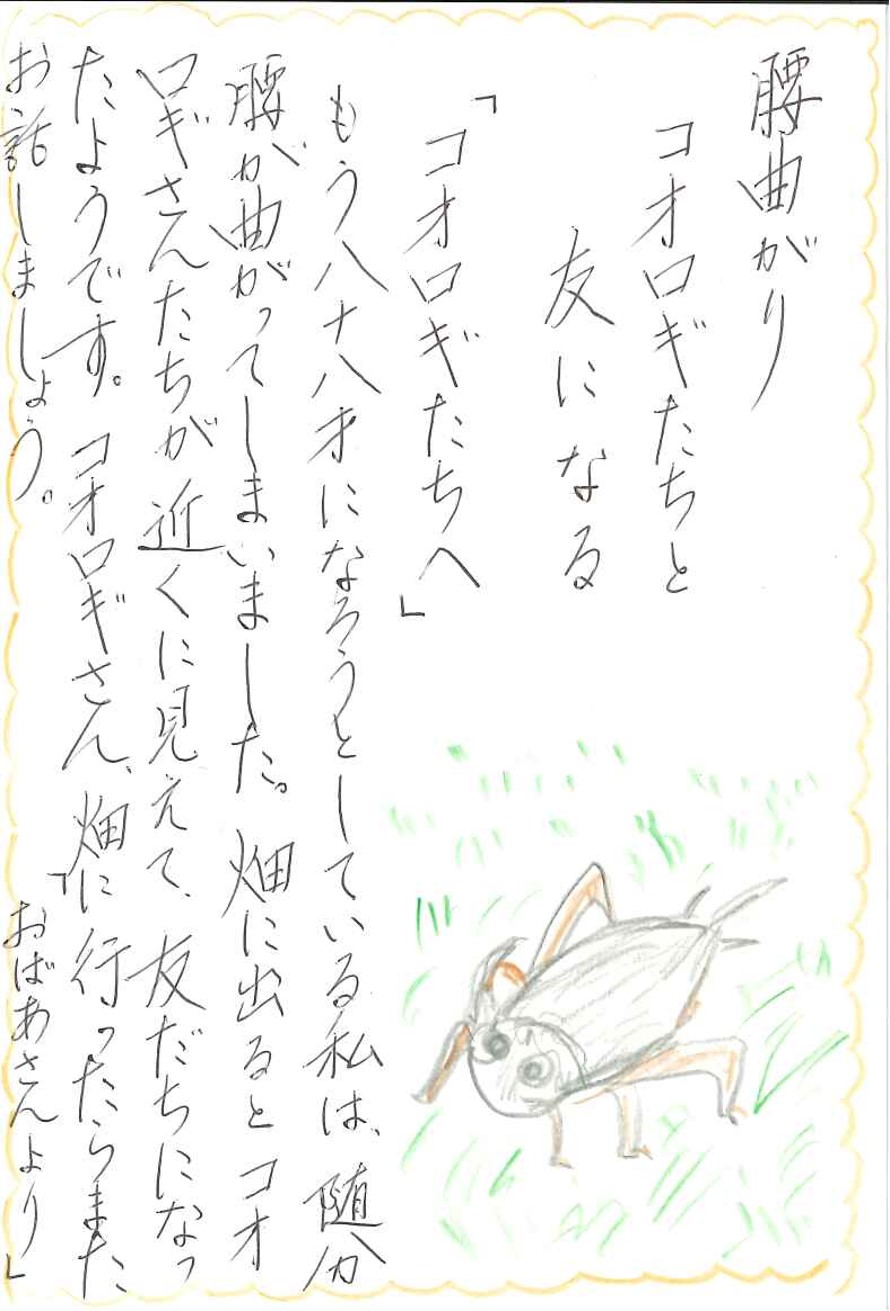 腰曲がり
コオロギたちと
友になる
「コオロギたちへ」
もう八十八才になろうとしている私は、随分
腰が曲がってしまいました。畑に出るとコオ
ロギさんたちが近くに見えて、友だちになっ
たようです。コオロギさん、畑に行ったらまた
お話しましょう。
「おばあさんより」